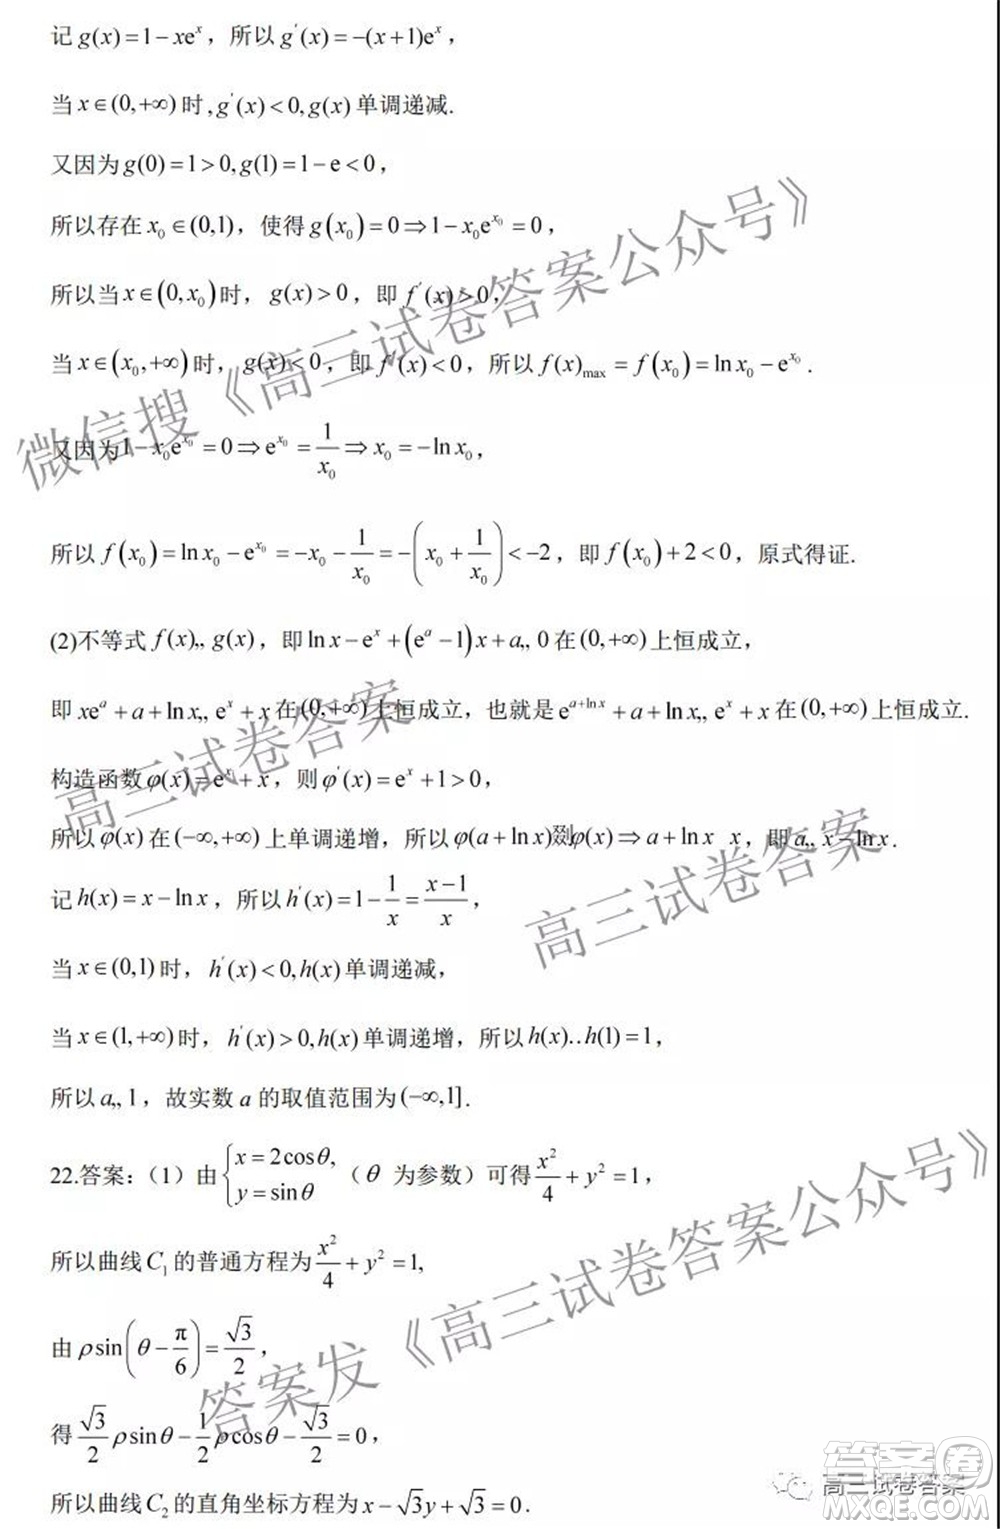 记 g(x)=1-xe^x，所以 g'(x)=-(x+1)e^x，
当 x∈(0,+∞) 时,g'(x)<0,g(x) 单调递减.
又因为 g(0)=1>0,g(1)=1-e<0，
所以存在 x₀∈(0,1)，使得 g(x₀)=0⇒1-x₀e^{x₀}=0，
所以当 x∈(0,x₀) 时，g(x)>0，即 f'(x)>0，
当 x∈(x₀,+∞) 时，g(x)<0，即 f'(x)<0，所以 f(x)_{max}=f(x₀)=ln x₀-e^{x₀}.
又因为 1-x₀e^{x₀}=0⇒e^{x₀}=1/x₀⇒x₀=-ln x₀，
所以 f(x₀)=ln x₀-e^{x₀}=-x₀-1/x₀=-(x₀+1/x₀)<-2，即 f(x₀)+2<0，原式得证.
(2)不等式 f(x),, g(x)，即 ln x-e^x+(e^a-1)x+a,, 0 在 (0,+∞) 上恒成立，
即 xe^a+a+ln x,, e^x+x 在 (0,+∞) 上恒成立，也就是 e^{a+ln x}+a+ln x,, e^x+x 在 (0,+∞) 上恒成立.
构造函数 φ(x)=e^x+x，则 φ'(x)=e^x+1>0，
所以 φ(x) 在 (-∞,+∞) 上单调递增，所以 φ(a+ln x) φ(x)⇒a+ln x x，即 a,, x-ln x.
记 h(x)=x-ln x，所以 h'(x)=1-1/x=(x-1)/x，
当 x∈(0,1) 时，h'(x)<0,h(x) 单调递减，
当 x∈(1,+∞) 时，h'(x)>0,h(x) 单调递增，所以 h(x)..h(1)=1，
所以 a,, 1，故实数 a 的取值范围为 (-∞,1].
22.答案：（1）由 {x=2cosθ, y=sinθ （θ 为参数）可得 x²/4+y²=1，
所以曲线 C₁ 的普通方程为 x²/4+y²=1,
由 ρsin(θ-π/6)=√3/2，
得 √3/2 ρsinθ-1/2 ρcosθ-√3/2=0，
所以曲线 C₂ 的直角坐标方程为 x-√3y+√3=0.
微信搜《高三试卷答案公众号》
高三试卷答案
高三试卷答案
答案发《高三试卷答案公众号》
高三试卷答案
答案圈
MXQE.COM